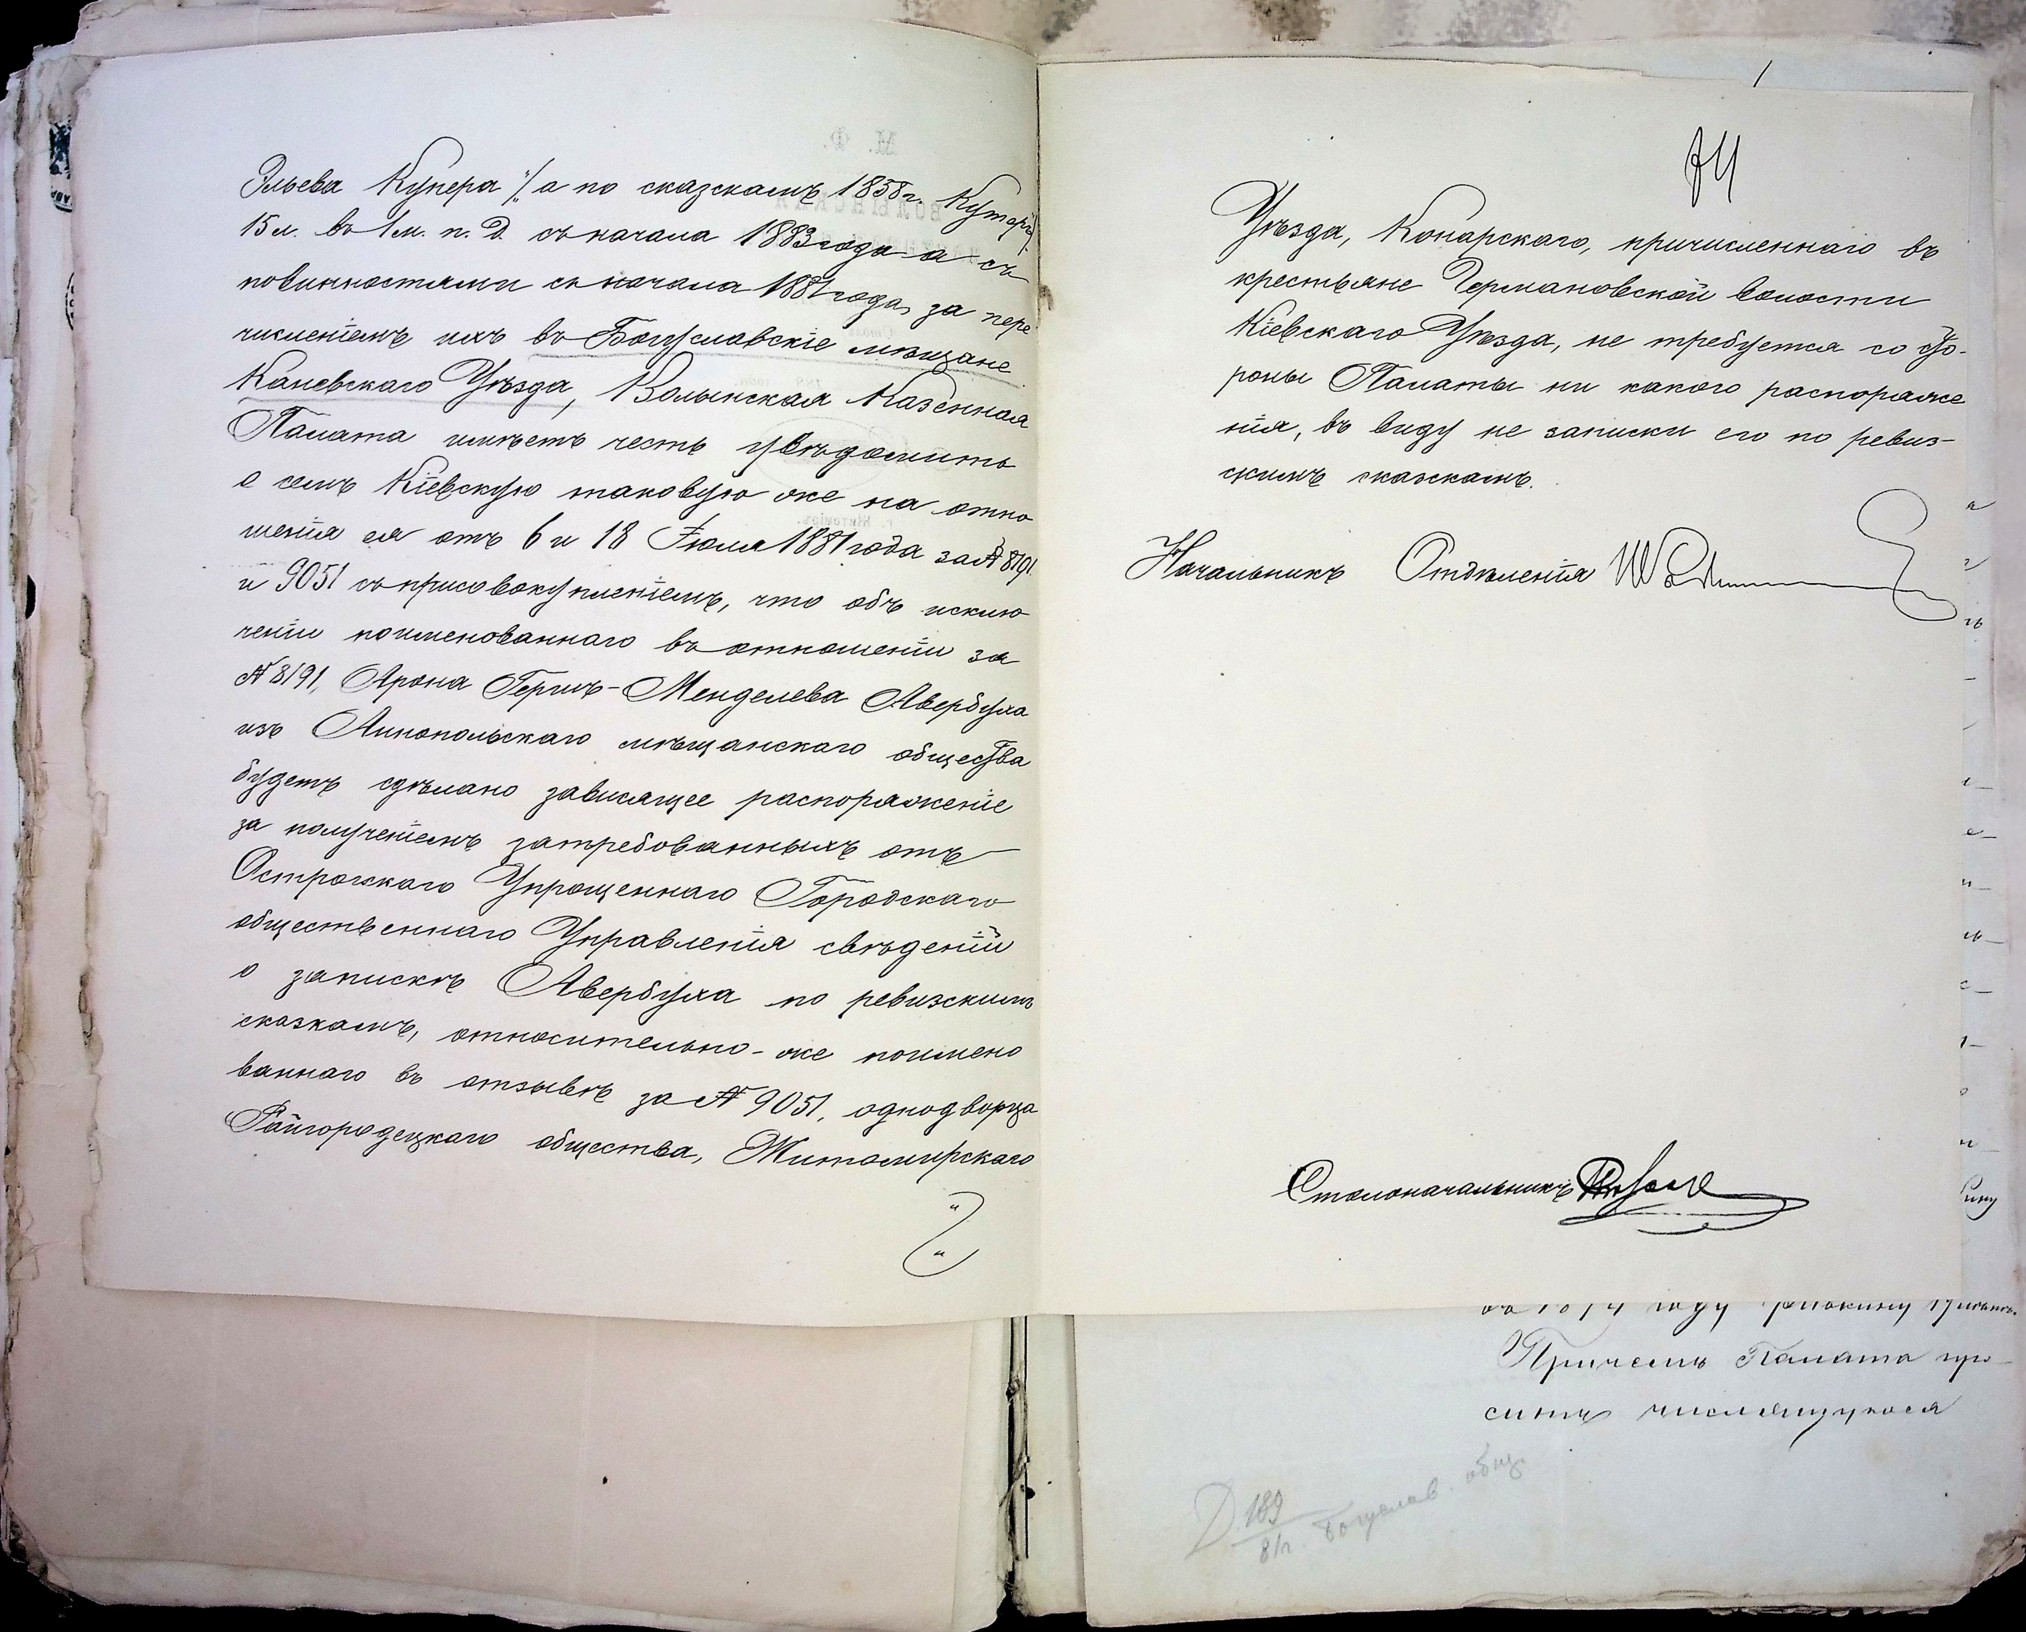 Эльева Купера "/ а по сказскамъ 1858 г. Кутеръ/
15 л. въ 1 м. п. д. съ начала 1883 года а съ
повинностями съ начала 1881 года, за пере
численіемъ ихъ въ Богуславскіе мѣщане
Каневскаго Уѣзда, Волынская Казенная
Палата имѣетъ честь увѣдомить
о семъ Кіевскую таковую же на отно
шенія ея отъ 6 и 18 Іюля 1881 года за № 8191
и 9051 съ присовокупленіемъ, что объ исклю
ченіи поименованнаго въ отношеніи за
№ 8191, Арона Гершъ-Менделева Авербуха
изъ Аннопольскаго мѣщанскаго общества
будетъ сдѣлано зависящее распоряженіе
за полученіемъ затребованныхъ отъ
Острожскаго Упрощеннаго Городскаго
общественнаго Управленія свѣденій
о запискѣ Авербуха по ревизскимъ
сказкамъ, относительно-же поимено
ваннаго въ отзывѣ за № 9051, однодворца
Райгородецкаго общества, Житомирскаго
74
Уѣзда, Конарскаго, причисленнаго въ
крестьяне Германовской волости
Кіевскаго Уѣзда, не требуется со сто-
роны Палаты ни какого распоряже
нія, въ виду не записки его по ревиз-
скимъ сказкамъ.
Начальникъ Отдѣленія
Столоначальникъ
году
Причемъ Палата про-
ситъ числящуюся
Д. 189
81 г. Богуслав. общ